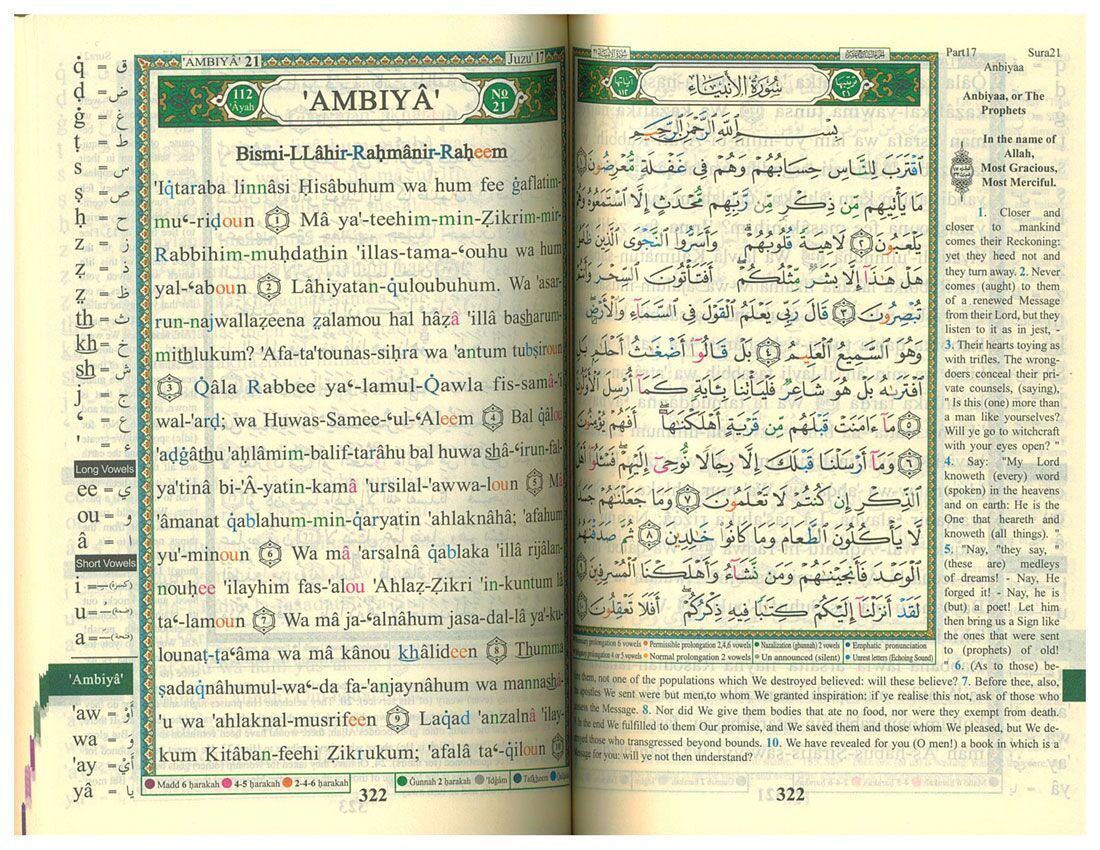 q̇ = ق
ḍ = ض
ġ = غ
ṭ = ط
s = س
ṣ = ص
ḥ = ح
z = ز
ẓ = ذ
ẓ = ظ
th = ث
kh = خ
sh = ش
j = ج
‘ = ع
' = ء
Long Vowels
ee = ي
ou = و
â = ا
Short Vowels
i = (كسرة)
u = (ضمة)
a = (فتحة)
'Ambiyâ'
'aw = أَوْ
wa = وَ
'ay = أَيْ
yâ = يا
'AMBIYÂ' 21
Juzu' 17
112
'Âyah
'AMBIYÂ'
No
21
Bismi-LLâhir-Raḥmânir-Raḥeem
'Iq̇taraba linnâsi Ḥisâbuhum wa hum fee ġaflatim-
mu‘-riḍoun 1 Mâ ya'-teehim-min-Ẓikrim-mir-
Rabbihim-muḥdathin 'illas-tama-‘ouhu wa hum
yal-‘aboun 2 Lâhiyatan-q̇uloubuhum. Wa 'asar-
run-najwallaẓeena ẓalamou hal hâẓâ 'illâ basharum-
mithlukum? 'Afa-ta'tounas-siḥra wa 'antum tubṣiroun
3 Q̇âla Rabbee ya‘-lamul-Q̇awla fis-samâ-'i
wal-'arḍ; wa Huwas-Samee-‘ul-‘Aleem 4 Bal q̇âlou
'aḍġâthu 'aḥlâmim-balif-tarâhu bal huwa shâ-‘irun-fal-
ya'tinâ bi-'Â-yatin-kamâ 'ursilal-'awwa-loun 5 Mâ
'âmanat q̇ablahum-min-q̇aryatin 'ahlaknâhâ; 'afahum
yu'-minoun 6 Wa mâ 'arsalnâ q̇ablaka 'illâ rijâlan-
nouḥee 'ilayhim fas-'alou 'Ahlaẓ-Ẓikri 'in-kuntum lâ
ta‘-lamoun 7 Wa mâ ja-‘alnâhum jasa-dal-lâ ya'-ku-
lounaṭ-ṭa‘âma wa mâ kânou khâlideen 8 Thumma
ṣadaq̇nâhumul-wa‘-da fa-'anjaynâhum wa mannashâ-
'u wa 'ahlaknal-musrifeen 9 Laq̇ad 'anzalnâ 'ilay-
kum Kitâban-feehi Ẓikrukum; 'afalâ ta‘-q̇iloun 10
Madd 6 ḥarakah 4-5 ḥarakah 2-4-6 ḥarakah Ġunnah 2 ḥarakah 'Idġâm Tafkheem
322
آياتها ١١٢
سُورَةُ الأَنبِيَاءِ
ترتيبها ٢١
بِسْمِ اللَّهِ الرَّحْمَٰنِ الرَّحِيمِ
ٱقْتَرَبَ لِلنَّاسِ حِسَابُهُمْ وَهُمْ فِى غَفْلَةٍ مُّعْرِضُونَ ١
مَا يَأْتِيهِم مِّن ذِكْرٍ مِّن رَّبِّهِم مُّحْدَثٍ إِلَّا ٱسْتَمَعُوهُ وَهُمْ
يَلْعَبُونَ ٢ لَاهِيَةً قُلُوبُهُمْ ۗ وَأَسَرُّوا۟ ٱلنَّجْوَى ٱلَّذِينَ ظَلَمُوا۟
هَلْ هَٰذَآ إِلَّا بَشَرٌ مِّثْلُكُمْ ۖ أَفَتَأْتُونَ ٱلسِّحْرَ وَأَنتُمْ
تُبْصِرُونَ ٣ قَالَ رَبِّى يَعْلَمُ ٱلْقَوْلَ فِى ٱلسَّمَآءِ وَٱلْأَرْضِ ۖ
وَهُوَ ٱلسَّمِيعُ ٱلْعَلِيمُ ٤ بَلْ قَالُوٓا۟ أَضْغَٰثُ أَحْلَٰمٍۭ بَلِ
ٱفْتَرَىٰهُ بَلْ هُوَ شَاعِرٌ فَلْيَأْتِنَا بِـَٔايَةٍ كَمَآ أُرْسِلَ ٱلْأَوَّلُونَ
٥ مَآ ءَامَنَتْ قَبْلَهُم مِّن قَرْيَةٍ أَهْلَكْنَٰهَآ ۖ أَفَهُمْ يُؤْمِنُونَ
٦ وَمَآ أَرْسَلْنَا قَبْلَكَ إِلَّا رِجَالًا نُّوحِىٓ إِلَيْهِمْ ۖ فَسْـَٔلُوٓا۟ أَهْلَ
ٱلذِّكْرِ إِن كُنتُمْ لَا تَعْلَمُونَ ٧ وَمَا جَعَلْنَٰهُمْ جَسَدًا
لَّا يَأْكُلُونَ ٱلطَّعَامَ وَمَا كَانُوا۟ خَٰلِدِينَ ٨ ثُمَّ صَدَقْنَٰهُمُ
ٱلْوَعْدَ فَأَنجَيْنَٰهُمْ وَمَن نَّشَآءُ وَأَهْلَكْنَا ٱلْمُسْرِفِينَ ٩
لَقَدْ أَنزَلْنَآ إِلَيْكُمْ كِتَٰبًا فِيهِ ذِكْرُكُمْ ۖ أَفَلَا تَعْقِلُونَ ١٠
prolongation 6 vowels Permissible prolongation 2,4,6 vowels Nazalization (ghunnah) 2 vowels Emphatic pronunciation
prolongation 4 or 5 vowels Normal prolongation 2 vowels Un announced (silent) Unrest letters (Echoing Sound)
Part17 Sura21
Anbiyaa
Anbiyaa, or The
Prophets
In the name of
Allah,
Most Gracious,
Most Merciful.
1. Closer and
closer to mankind
comes their Reckoning:
yet they heed not and
they turn away. 2. Never
comes (aught) to them
of a renewed Message
from their Lord, but they
listen to it as in jest, -
3. Their hearts toying as
with trifles. The wrong-
doers conceal their pri-
vate counsels, (saying),
" Is this (one) more than
a man like yourselves?
Will ye go to witchcraft
with your eyes open? "
4. Say: "My Lord
knoweth (every) word
(spoken) in the heavens
and on earth: He is the
One that heareth and
knoweth (all things). "
5. "Nay, "they say, "
(these are) medleys
of dreams! - Nay, He
forged it! - Nay, he is
(but) a poet! Let him
then bring us a Sign like
the ones that were sent
to (prophets) of old!
" 6. (As to those) be-
them, not one of the populations which We destroyed believed: will these believe? 7. Before thee, also,
apostles We sent were but men,to whom We granted inspiration: if ye realise this not, ask of those who
the Message. 8. Nor did We give them bodies that ate no food, nor were they exempt from death.
In the end We fulfilled to them Our promise, and We saved them and those whom We pleased, but We de-
those who transgressed beyond bounds. 10. We have revealed for you (O men!) a book in which is a
Message for you: will ye not then understand?
322